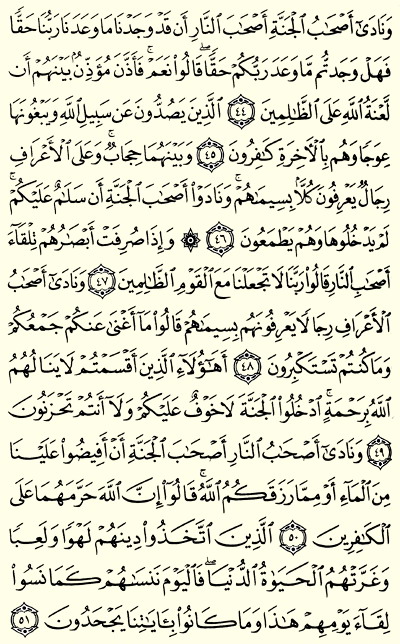 وَنَادَىٰٓ أَصۡحَٰبُ ٱلۡجَنَّةِ أَصۡحَٰبَ ٱلنَّارِ أَن قَدۡ وَجَدۡنَا مَا وَعَدَنَا رَبُّنَا حَقّٗا
فَهَلۡ وَجَدتُّم مَّا وَعَدَ رَبُّكُمۡ حَقّٗاۖ قَالُواْ نَعَمۡۚ فَأَذَّنَ مُؤَذِّنُۢ بَيۡنَهُمۡ أَن
لَّعۡنَةُ ٱللَّهِ عَلَى ٱلظَّٰلِمِينَ ٤٤ ٱلَّذِينَ يَصُدُّونَ عَن سَبِيلِ ٱللَّهِ وَيَبۡغُونَهَا
عِوَجٗا وَهُم بِٱلۡأٓخِرَةِ كَٰفِرُونَ ٤٥ وَبَيۡنَهُمَا حِجَابٞۚ وَعَلَى ٱلۡأَعۡرَافِ
رِجَالٞ يَعۡرِفُونَ كُلَّۢا بِسِيمَىٰهُمۡۚ وَنَادَوۡاْ أَصۡحَٰبَ ٱلۡجَنَّةِ أَن سَلَٰمٌ عَلَيۡكُمۡۚ
لَمۡ يَدۡخُلُوهَا وَهُمۡ يَطۡمَعُونَ ٤٦ ۞ وَإِذَا صُرِفَتۡ أَبۡصَٰرُهُمۡ تِلۡقَآءَ
أَصۡحَٰبِ ٱلنَّارِ قَالُواْ رَبَّنَا لَا تَجۡعَلۡنَا مَعَ ٱلۡقَوۡمِ ٱلظَّٰلِمِينَ ٤٧ وَنَادَىٰٓ أَصۡحَٰبُ
ٱلۡأَعۡرَافِ رِجَالٗا يَعۡرِفُونَهُم بِسِيمَىٰهُمۡ قَالُواْ مَآ أَغۡنَىٰ عَنكُمۡ جَمۡعُكُمۡ
وَمَا كُنتُمۡ تَسۡتَكۡبِرُونَ ٤٨ أَهَٰٓؤُلَآءِ ٱلَّذِينَ أَقۡسَمۡتُمۡ لَا يَنَالُهُمُ
ٱللَّهُ بِرَحۡمَةٍۚ ٱدۡخُلُواْ ٱلۡجَنَّةَ لَا خَوۡفٌ عَلَيۡكُمۡ وَلَآ أَنتُمۡ تَحۡزَنُونَ
٤٩ وَنَادَىٰٓ أَصۡحَٰبُ ٱلنَّارِ أَصۡحَٰبَ ٱلۡجَنَّةِ أَنۡ أَفِيضُواْ عَلَيۡنَا
مِنَ ٱلۡمَآءِ أَوۡ مِمَّا رَزَقَكُمُ ٱللَّهُۚ قَالُوٓاْ إِنَّ ٱللَّهَ حَرَّمَهُمَا عَلَى
ٱلۡكَٰفِرِينَ ٥٠ ٱلَّذِينَ ٱتَّخَذُواْ دِينَهُمۡ لَهۡوٗا وَلَعِبٗا
وَغَرَّتۡهُمُ ٱلۡحَيَوٰةُ ٱلدُّنۡيَاۚ فَٱلۡيَوۡمَ نَنسَىٰهُمۡ كَمَا نَسُواْ
لِقَآءَ يَوۡمِهِمۡ هَٰذَا وَمَا كَانُواْ بِـَٔايَٰتِنَا يَجۡحَدُونَ ٥١